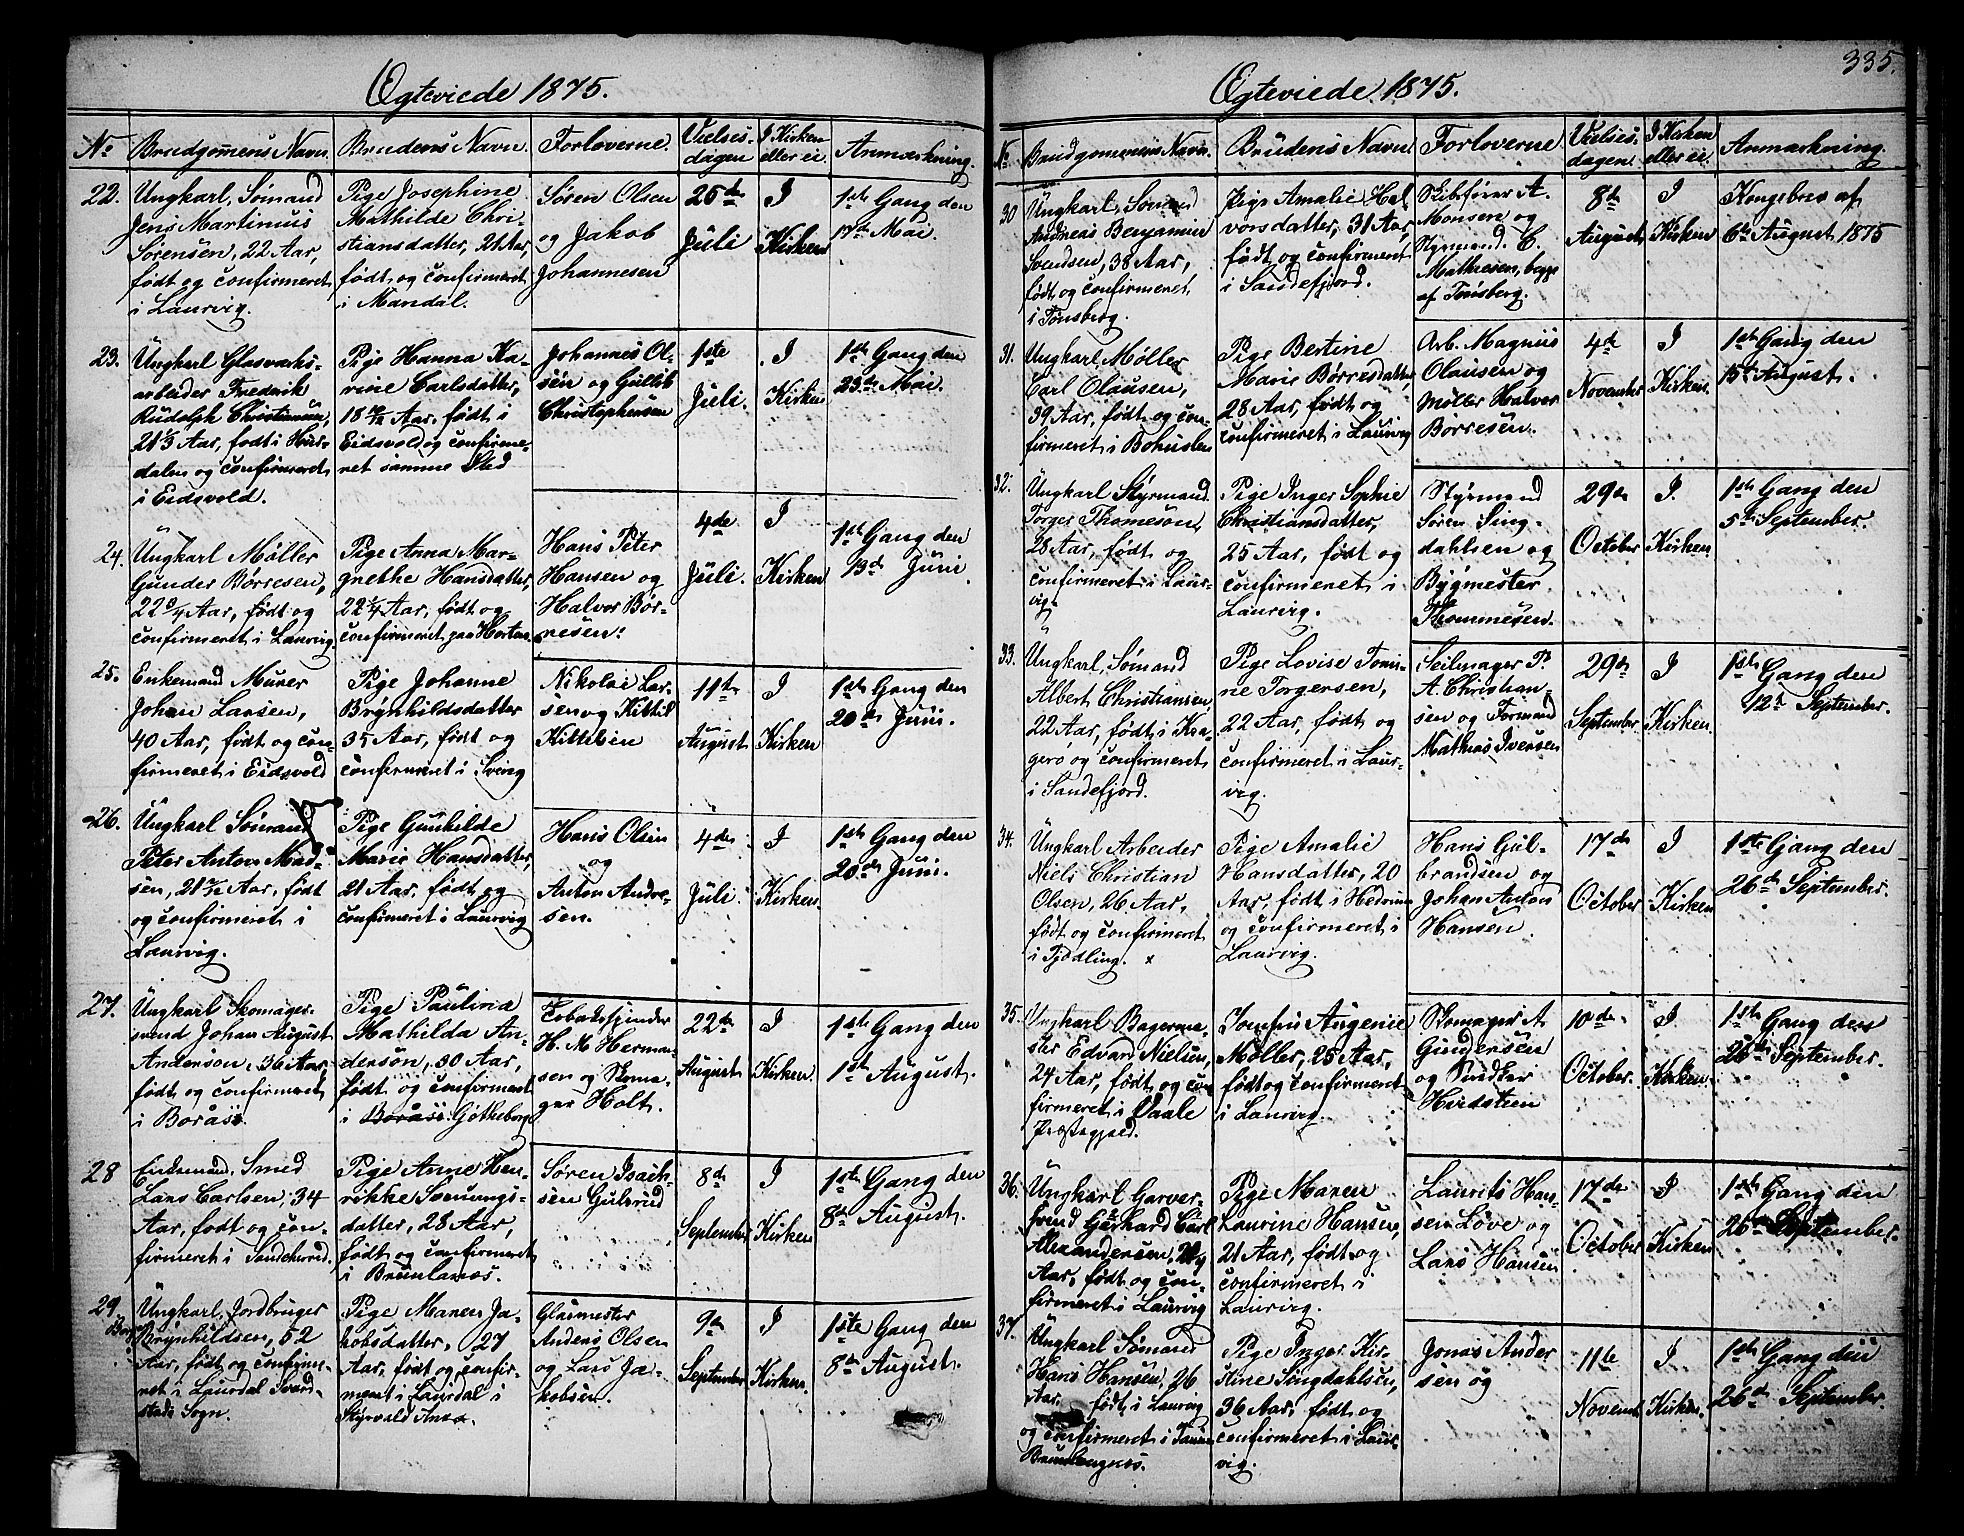 Ægteviede 1875.
No Brudgommens Navn. Brudens Navn. Forloverne. Vielses- dagen I Kirken eller ei. Anmærkning.
22.
Ungkarl, Sømand
Jens Martinius
Sørensen, 22 Aar,
født og confirmeret
i Laurvig.
Pige Josephine
Mathilde Chri-
stiansdatter, 21 Aar,
født og confirmeret
i Mandal.
Søren Olsen
og Jakob
Johannesen
25de
Juli
I
Kirken
1ste Gang den
17de Mai.
23.
Ungkarl Glasværks-
arbeider Frederik
Rudolph Christiansen,
21 1/3 Aar, født i Hur-
dalen og confirmeret
i Eidsvold.
Pige Hanna Ka-
rine Carlsdatter,
18 Aar, født i
Eidsvold og confirme-
ret samme Sted
Johannes Ol-
sen og Gullik
Christophersen
1ste
Juli.
I
Kirken
1ste Gang den
23de Mai.
24.
Ungkarl Møller
Gunder Børresen,
22 Aar, født og
confirmeret i Laurvig.
Pige Anna Mar-
grethe Hansdatter,
22 1/4 Aar, født og
confirmeret paa Horten.
Hans Peter
Hansen og
Halvor Bør-
resen.
4de
Juli.
I
Kirken
1ste Gang den
13de Juni
25.
Enkemand Murer
Johan Larsen,
40 Aar, født og con-
firmeret i Eidsvold
Pige Johanne
Brynhildsdatter
35 Aar, født og
confirmeret i
Nikolai Lar-
sen og Kittil
Kittilsen
11te
August
I
Kirken
1ste Gang den
20de Juni.
26.
Ungkarl Sømand
Peter Anton Mad-
sen, 21 Aar, født
og confirmeret i
Laurvig.
Pige Gunhilde
Marie Hansdatter,
21 Aar, født og
confirmeret i Laurvig
Hans Olsen
og
Anton Andre-
sen.
4de
Juli.
I
Kirken.
1ste Gang den
20de Juni.
27.
Ungkarl Skomager-
svend Johan August
Anderson, 36 Aar,
født og confirmeret
i Borås.
Pige Paulina
Mathilda An-
derson, 30 Aar,
født og confirmeret
i Borås Gøtheborg
Tobaksspinder
H. M. Herman-
sen og Skoma-
ger Holt.
22de
August
I
Kirken.
1ste Gang den
1ste August.
28
Enkemand, Smed
Lars Carlsen, 34
Aar, født og con-
firmeret i Sandeherred.
Pige Anne Hen-
rikke Sørensens-
datter, 28 Aar,
født og confirmeret
i Brunlanæs.
Søren Isach-
sen Gulsrud
8de
September
I
Kirken
1ste Gang den
8de August.
29.
Ungkarl, Jordbruger
Brynhildsen, 52
Aar, født og confirme-
ret i Laurdal
Sogn.
Pige Maren Ja-
kobsdatter, 27
Aar, født og confir-
meret i Laurdal i
Glasmester
Anders Olsen
og Lars Ja-
kobsen.
9de
September
I
Kirken.
1ste Gang den
8de August.
335.
Ægteviede 1875.
No Brudgommens Navn. Brudens Navn. Forloverne. Vielses- dagen. I Kirken eller ei. Anmærkning.
30
Ungkarl, Sømand
Andreas Benjamin
Svendsen, 38 Aar,
født og confirmeret,
i Tønsberg.
Pige Amalie Hal-
vorsdatter, 31 Aar,
født og confirmeret
i Sandefjord.
Skibsfører A.
Monsen og
Styrmand C.
Mathiesen, begge
af Tønsberg.
8de
August
I
Kirken
Kongebrev af
6te August 1875
31.
Ungkarl, Møller
Carl Olausen,
39 Aar, født og con-
firmeret i Bohuslen
Pige Bertine
Marie Børresdatter,
28 Aar, født og
confirmeret i Laurvig
Arb. Magnus
Olausen og
Møller Halvor
Børresen.
4de
November
I
Kirken.
1ste Gang den
15de August.
32.
Ungkarl Styrmand
Torger Thomesøn,
28 Aar, født og
confirmeret i Laur-
vig.
Pige Inger Sophie
Christiansdatter,
25 Aar, født og
confirmeret i
Laurvig.
Styrmand
Søren Sing-
dahlsen og
Bygmester
Thommesen.
29de
October
I.
Kirken.
1ste Gang den
5te September.
33.
Ungkarl, Sømand
Albert Christiansen,
22 Aar, født i Kra-
gerø og confirmeret
i Sandefjord.
Pige Lovise Tomi-
ne Torgersen,
22 Aar, født og
confirmeret i Laur-
vig.
Seilmager P.
A. Christian-
sen og Formand
Mathias Iversen
29de
September.
I
Kirken.
1ste Gang den
12te September.
34.
Ungkarl Arbeider
Niels Christian
Olsen, 26 Aar,
født og confirmeret
i Tjødling.
Pige Amalie
Hansdatter, 20
Aar, født i Hedrum
og confirmeret i
Laurvig.
Hans Gul-
brandsen og
Johan Anton
Hansen.
17de
October
I
Kirken
1ste Gang den
26de September.
35.
Ungkarl Bagerme-
ster Edvard Nielsen,
24 Aar, født og con
firmeret i Vaale
Præstegjæld.
Jomfru Augenie
Møller, 25 Aar,
født og confirmeret
i Laurvig.
Skomager A
Gundersen
og Snedker
Hardstein
10de
October.
I
Kirken.
1ste Gang den
26de September.
36.
Ungkarl Garver-
svend Gerhard Carl
Alexandersen,
Aar, født og con-
firmeret i Laurvig
Pige Maren
Laurine Hansen,
21 Aar, født og
confirmeret i
Laurvig.
Laurits Han-
sen Løve og
Lars Hansen
17de
October
I
Kirken
1ste Gang den
26de September.
37.
Ungkarl Sømand
Hans Hansen, 26
Aar, født i Laurvig
og confirmeret i
Pige Inger Kir-
stine Singdahlsen,
36 Aar, født og
confirmeret i Laur-
vig.
Jonas Ander
sen og
11te
Novemb
I
Kirken.
1ste Gang den
26de September.